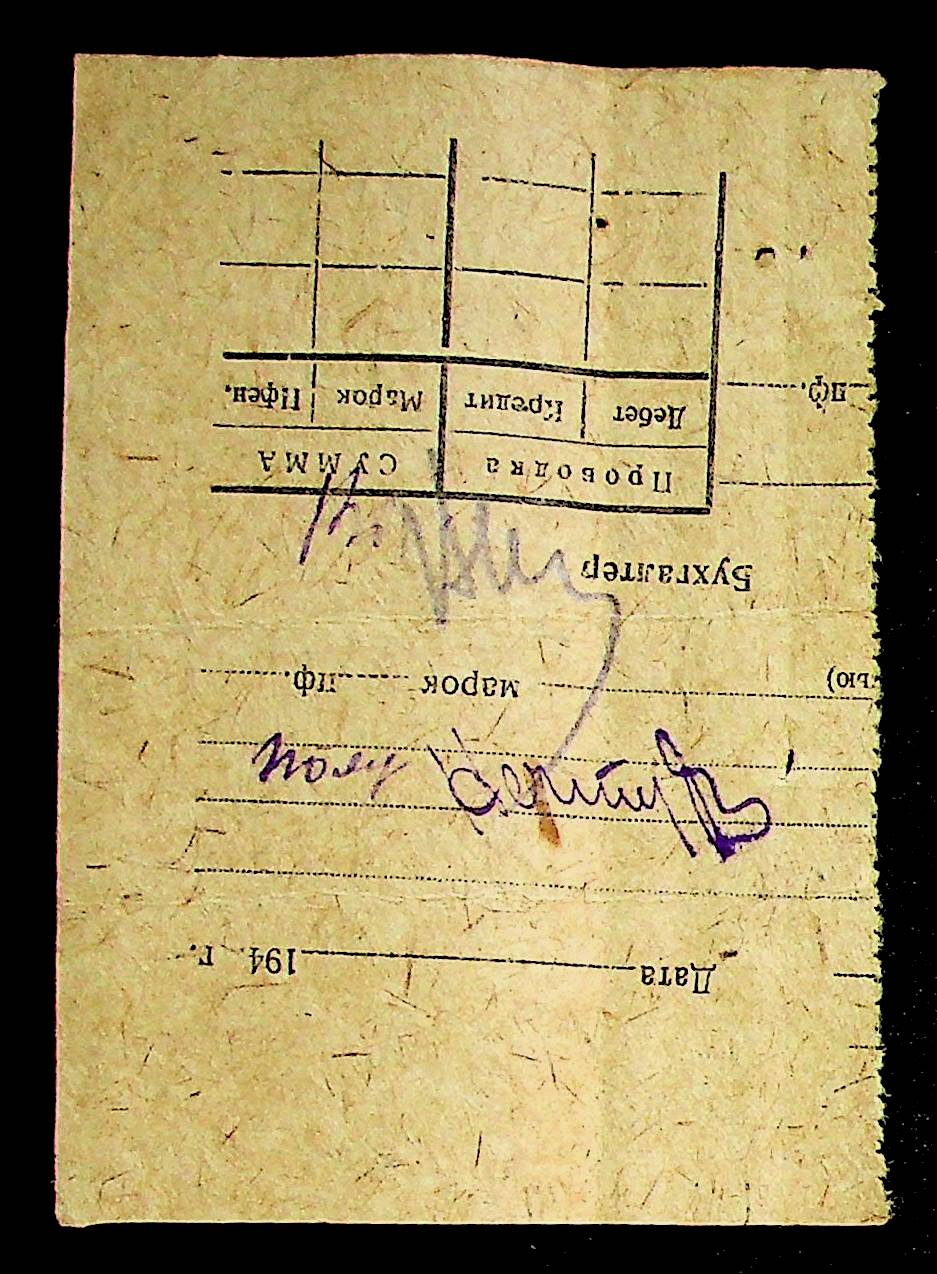 Дата 194 г.
ью) марок пф.
Бухгалтер
Проводка СУММА
пф. Дебет Кредит Марок Пфен.